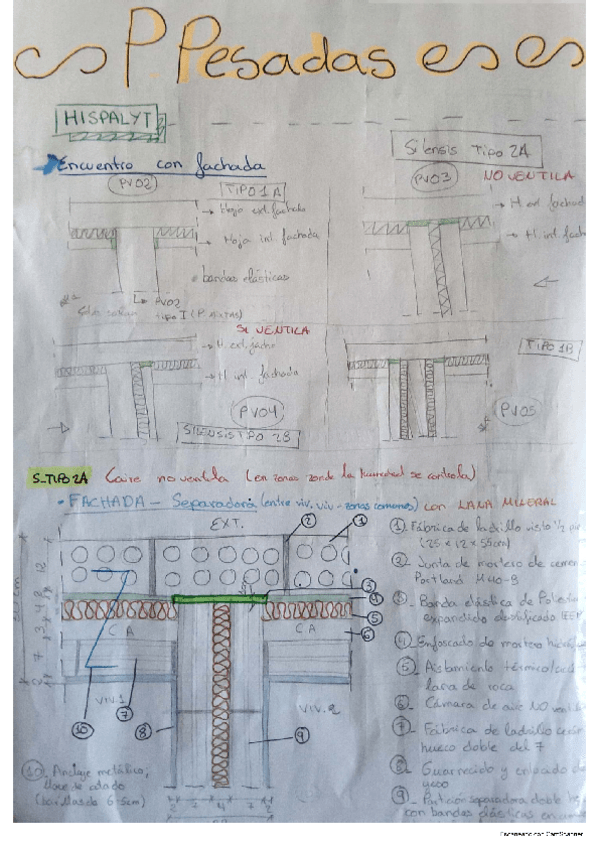 P. Pesadas
HISPALYT
Silensis Tipo 2A
Encuentro con fachada
PV02
TIPO 1A
PV03
NO VENTILA
Hoja ext. fachada
H ext fachad
Hoja int. fachada
H int. fach
bandas elásticas
PV02
tipo I
SI VENTICA
H. ext. facha
H int. fachada
TIPO 1B
PV04
PV05
SILENSIS TIPO 2B
S_TIPO 2A (aire no ventila (en zonas zonde la humedad se controla)
• FACHADA — Separadora (entre viv, viv - zonas comunes) con LANA MINERAL
EXT.
2
1
1 Fábrica de ladrillo visto 1/2 pie
(25 x 12 x 55cm)
2 Junta de mortero de cemen
Portland M40-B
3
4
5
6
3 Banda elástica de Poliesti
expandido elastificado (EEP
4 Enfoscado de mortero hidró
5 Aislamiento térmico/acús
lana de roca
6 Cámara de aire NO vent
7 Fábrica de ladrillo cerám
hueco doble del 7
8 Guarnecido y enlucido de
yeso
9 Partición separadora doble h
con bandas elásticas
CA
CA
VIV. 1
VIV. 2
10
7
8
9
10 Anclaje metálico,
llave de atado
(varillas de 6.5cm)